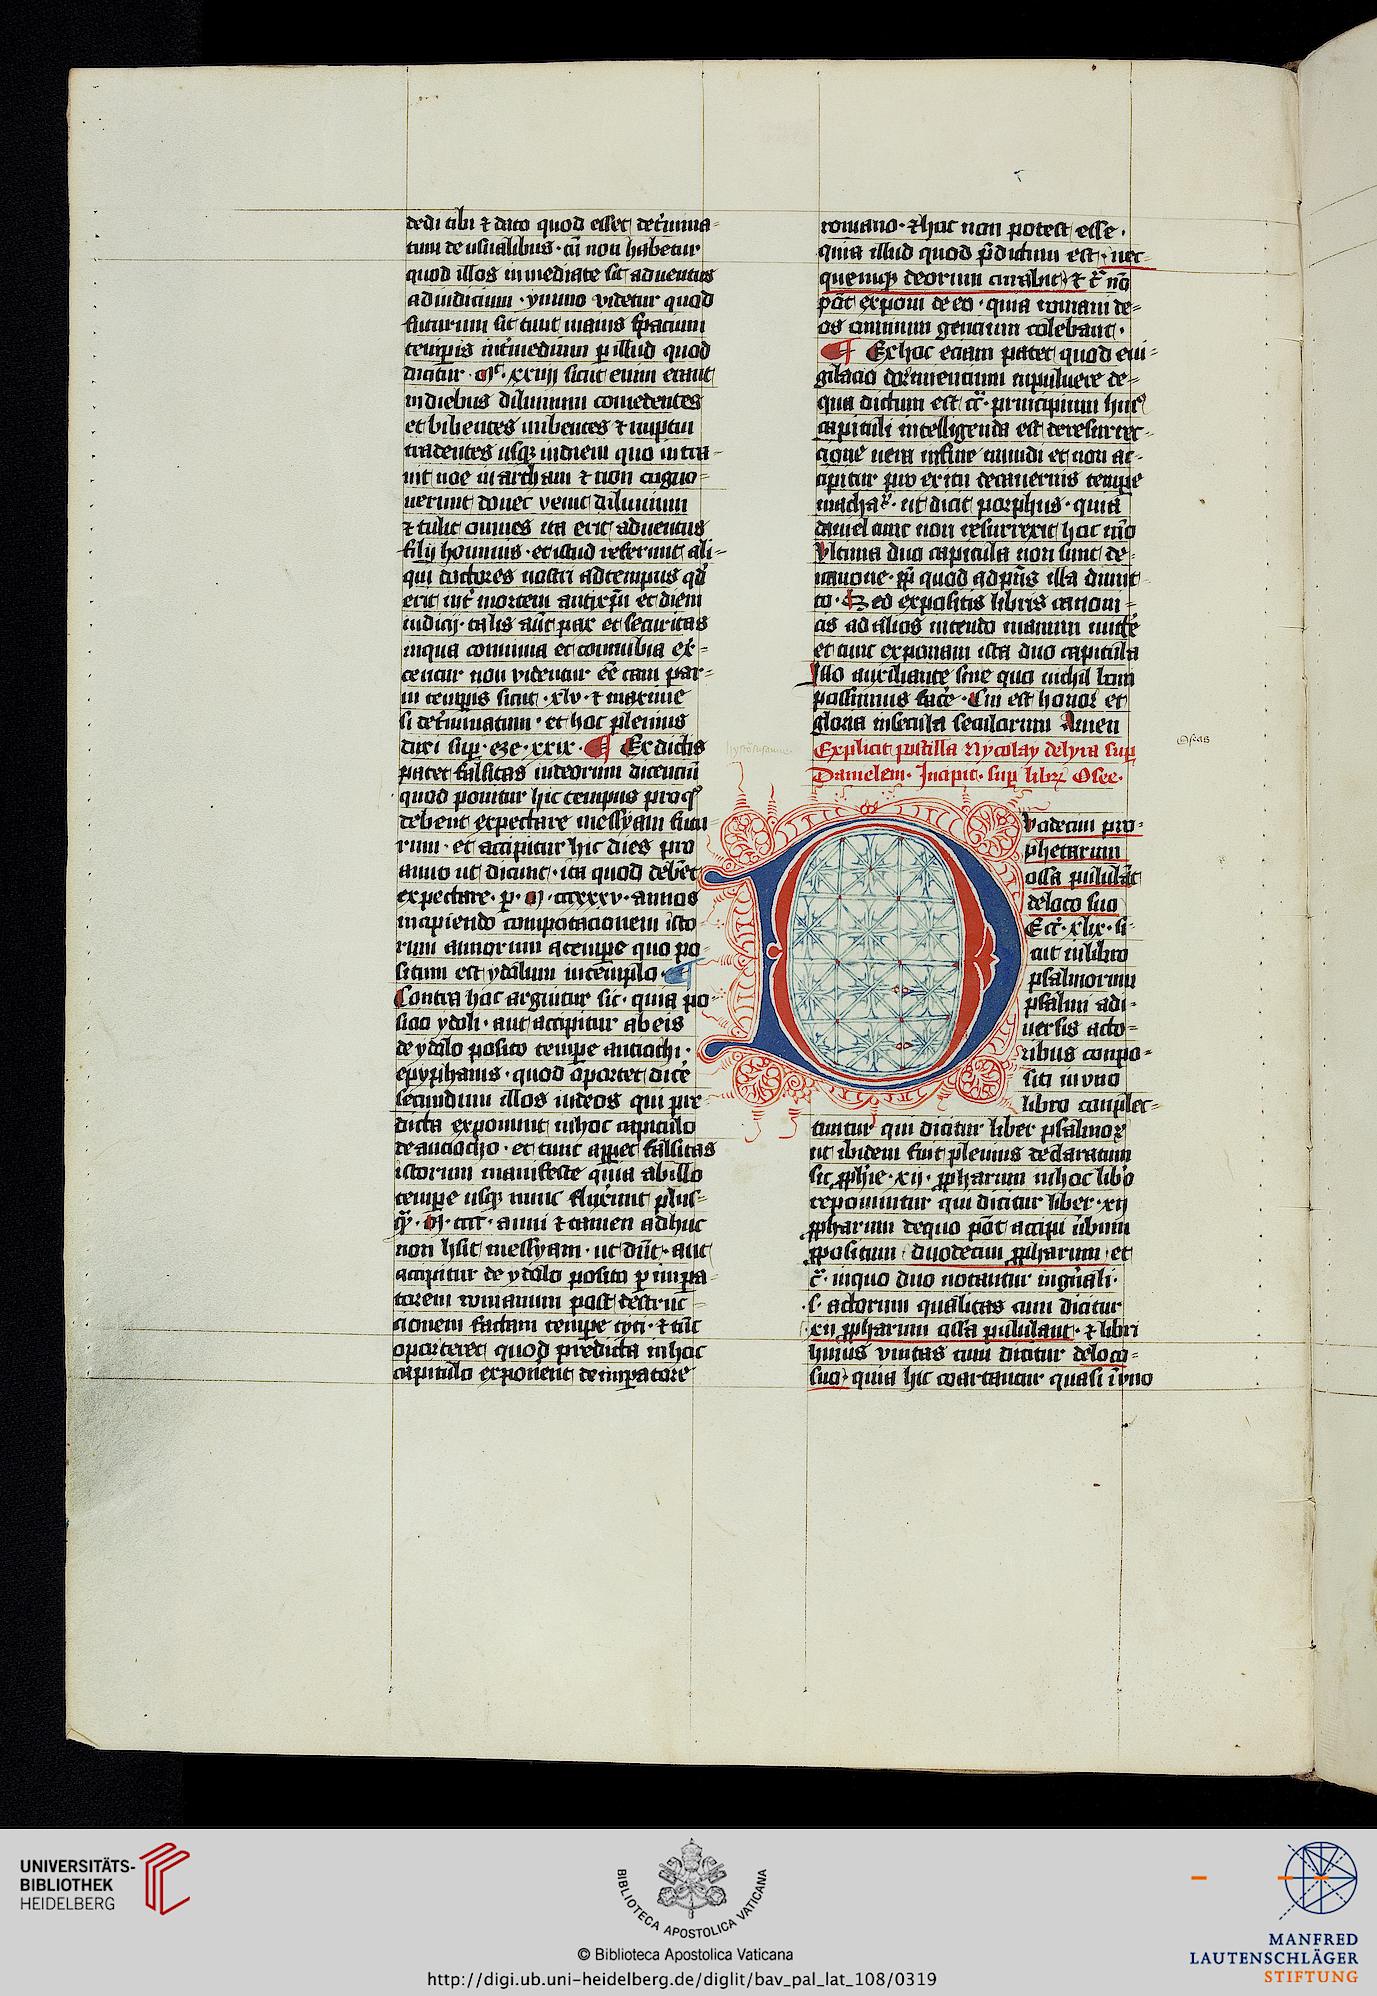 dedi tibi ⁊ dato quod esset det'mina-
tum de usualibus · tn̄ non habetur
quod illos inmediate sit aduentus
ad iudicium · ymmo videtur quod
futurum sit tunc maius spacium
temp̄is int'medium p illud quod
dicitur · mͭ · xxiiij sicut enim erant
in diebus diluuium comedentes
et bibentes nubentes ⁊ nuptui
tradentes usq; in diem quo intra-
uit noe in archam ⁊ non cogno-
uerunt donec venit diluuium
⁊ tulit omnes ita erit aduentus
filij hominis · et istud referunt ali-
qui doctores nostri ad tempus qd'
erit int' mortem antixp̄i et diem
iudicij · talis aūt pax et securitas
in qua conuiuia et connubia ex-
centur non videntur eē tam par-
ui temp̄is sicut · xlv · ⁊ maxime
si det'minatum · et hoc plenius
dixi sup · eze · xxix · ¶ Ex dictis
patet falsitas iudeorum dicenciū
quod ponitur hic tempus pro q°
debent expectare messyam futu-
rum · et accipitur hic dies pro
anno ut dicunt · ita quod debēt
expectare · p · m · cccxxxv · annos
incipiendo compotacionem isto-
rum annorum a tempe quo po-
situm est ydolum in templo · ¶
Contra hoc arguitur sic · quia po-
sicio ydoli · aut accipitur ab eis
de ydolo posito tempe antiochi ·
epyphanis · quod oportet dicē
secundum illos iudeos qui pre-
dicta exponunt in hoc capitulo
de antiocho · et tunc apparet falsitas
istorum manifeste quia ab illo
tempe usq; nunc fluxerunt plus-
q̄ · m · ccc · anni ⁊ tamen adhuc
non hn̄t messyam · ut dn̄t · aut
accipitur de ydolo posito p impa-
torem romanum post destruc-
cionem factam tempe tyti · ⁊ tūc
oporteret quod predicta in hoc
capitulo exponent de impatore
romano · ⁊ hoc non potest esse ·
quia illud quod p̄dictum est · nec
quemq; deorum curabit · ⁊ c̄ · nō
pōt exponi de eo · quia romani de-
os omnium gencium colebant ·
¶ Ex hoc eciam patet quod eui-
gilacio dormiencium in puluere de-
qua dictum est · cͨ · principium huiꝰ
capituli intelligenda est de resurrec-
cione uera in fine mundi et non ac-
cipitur pro exitu de cauernis tempe
macha · ut dicit porphirius · quia
daniel tunc non resurrexit hoc mō
Vltima duo capitula non sunt de
canone · ꝓp quod ad pn̄s illa dimit-
to · Sed expositis libris canoni-
cis ad alios intendo manum mittē
et tunc exponam ista duo capitula
Illo auxiliante sine quo nichil boni
possumus facē · Cui est honor et
gloria in secula seculorum Amen
Explicit postilla Nycolay de lyra sup
Danielem · Incipit · sup libꝝ Osee ·
hystō susanne
Oseas
Duodecim pro-
phetarum
ossa pululāt
de loco suo
Ecc · xlix · si-
cut in libro
psalmorum
psalmi a di-
uersis acto-
ribus compo-
siti in vno
libro complec-
tuntur qui dicitur liber psalmoꝝ
ut ibidem fuit plenius declaratum
sic ꝓphie · xij · ꝓpharum in hoc libō
reponuntur qui dicitur liber · xij
ꝓpharum de quo pōt accipi ūbum
ꝓpositum duodecim ꝓpharum et
c̄ · in quo duo notantur in gn̄ali ·
· s · actorum qualitas cum dicitur
· xij ꝓpharum ossa pululant · ⁊ libri
huius vnitas cum dicitur de loco-
suo · quia hic coartantur quasi ī vno
UNIVERSITÄTS-
BIBLIOTHEK
HEIDELBERG
BIBLIOTECA APOSTOLICA VATICANA
© Biblioteca Apostolica Vaticana
http://digi.ub.uni-heidelberg.de/diglit/bav_pal_lat_108/0319
MANFRED
LAUTENSCHLÄGER
STIFTUNG